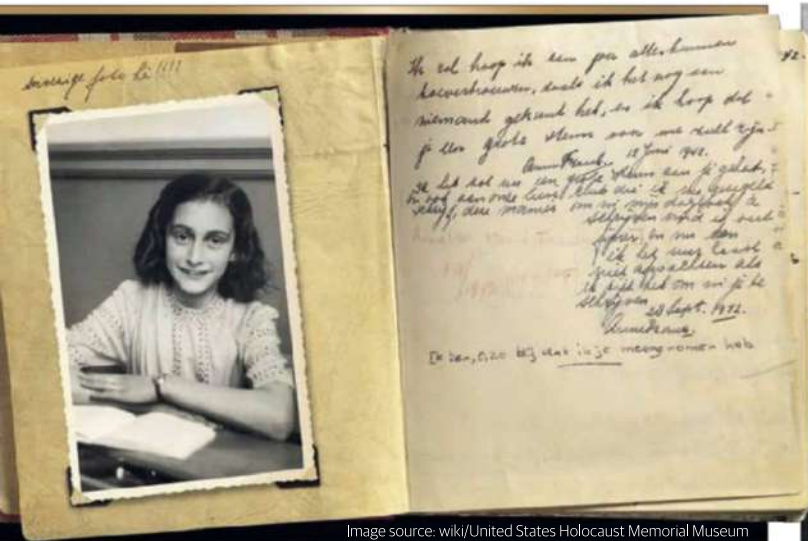 foto hè!!!!
Ik zal hoop ik aan jou alles kunnen
toevertrouwen, zoals ik het nog aan
niemand gekend heb, en ik hoop dat
je een grote steun voor me zult zijn.
Anne Frank. 12 Juni 1942.
Ik heb tot nu toe een grote steun aan je gehad,
en ook aan onze lieve club die ik nu geregeld
schrijf, deze manier om in mijn dagboek te
schrijven vind ik veel
fijner en nu kan
ik het uur haast
niet afwachten als
ik tijd heb om in je te
schrijven.
28 Sept. 1942.
Anne Frank.
Ik ben, o, zo blij dat ik je meegenomen heb
Image source: wiki/United States Holocaust Memorial Museum